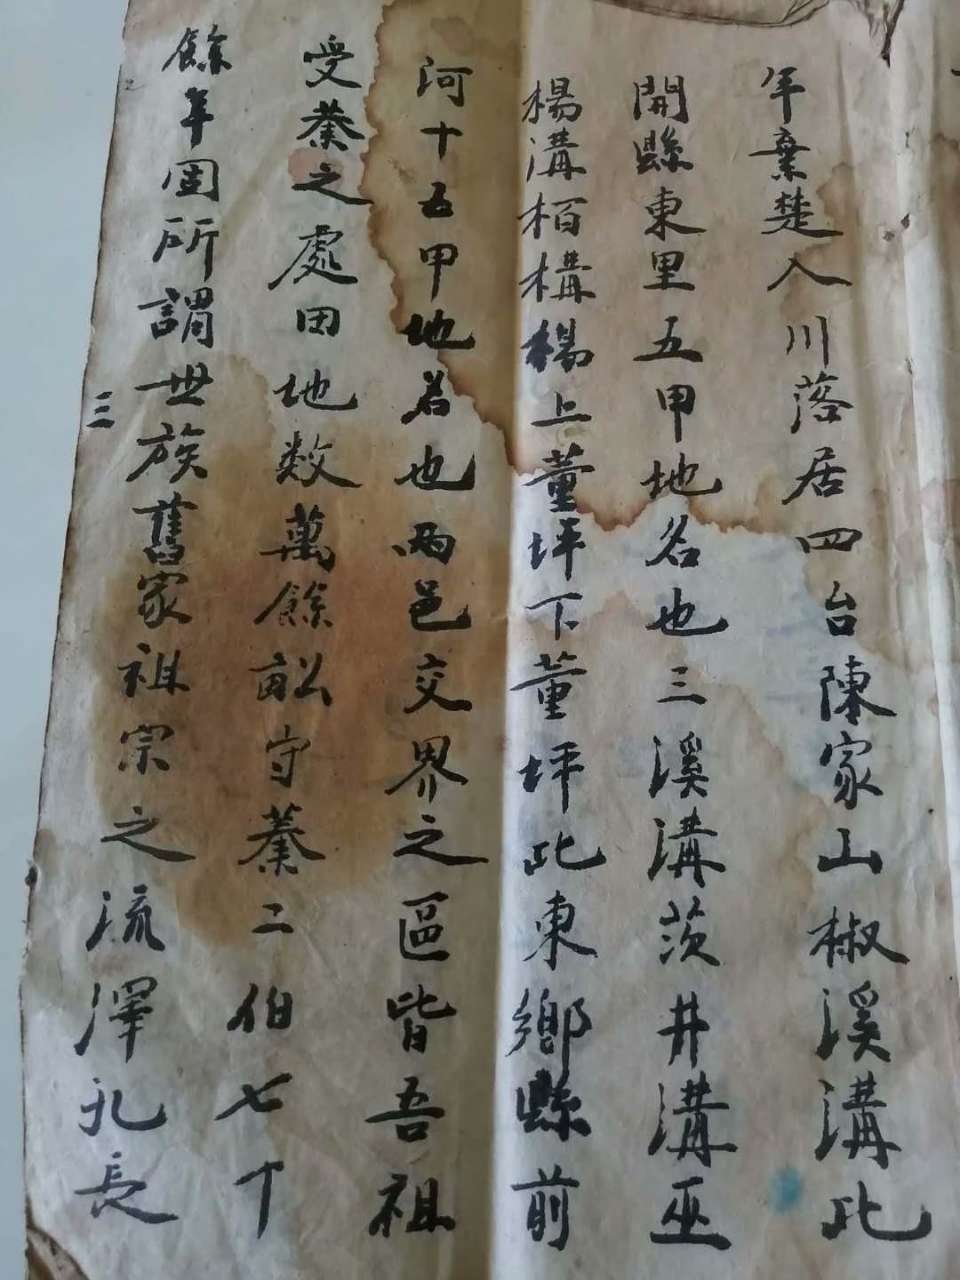 年棄楚入川落居四台陳家山椒溪溝此
開縣東里五甲地名也三溪溝茨井溝巫
楊溝栢構楊上董坪下董坪此東鄉縣前
河十五甲地名也两邑交界之區皆吾祖
受業之處田地数萬餘畝守業二伯七十
餘年固所謂世族舊家祖宗之流澤孔長
三